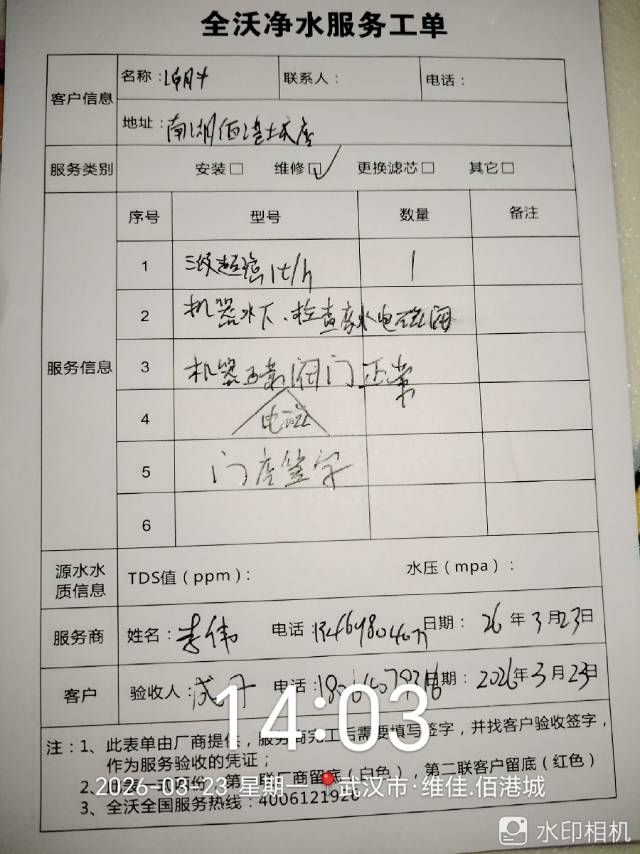 全沃净水服务工单
客户信息
名称： 联系人： 电话：
地址：南湖佰港城店
服务类别 安装□ 维修☑ 更换滤芯□ 其它□
服务信息
序号 型号 数量 备注
1 三级超强1t/h 1
2 机器水下.检查废水电磁阀
3 机器 阀门正常
电磁
4
5 门店签字
6
源水水质信息 TDS值（ppm）： 水压（mpa）：
服务商 姓名：李伟 电话 日期：26年3月23日
客户 验收人： 电话： 日期：2026年3月23日
注：1、此表单由厂商提供，服务商完工后需要填写签字，并找客户验收签字，
作为服务验收的凭证；
2、 两份，第一联厂商留底（白色），第二联客户留底（红色）
3、全沃全国服务热线：4006121926
14:03
2026-03-23 星期一 武汉市·维佳.佰港城
水印相机